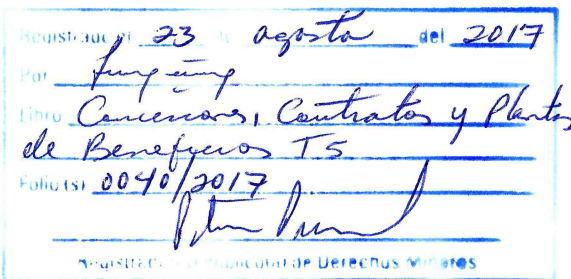 Registrado el 23 de agosto del 2017
Por
Libro Concesiones, Contratos y Plantas
de Beneficios T5
Folio(s) 0040/2017
de Derechos Mineros